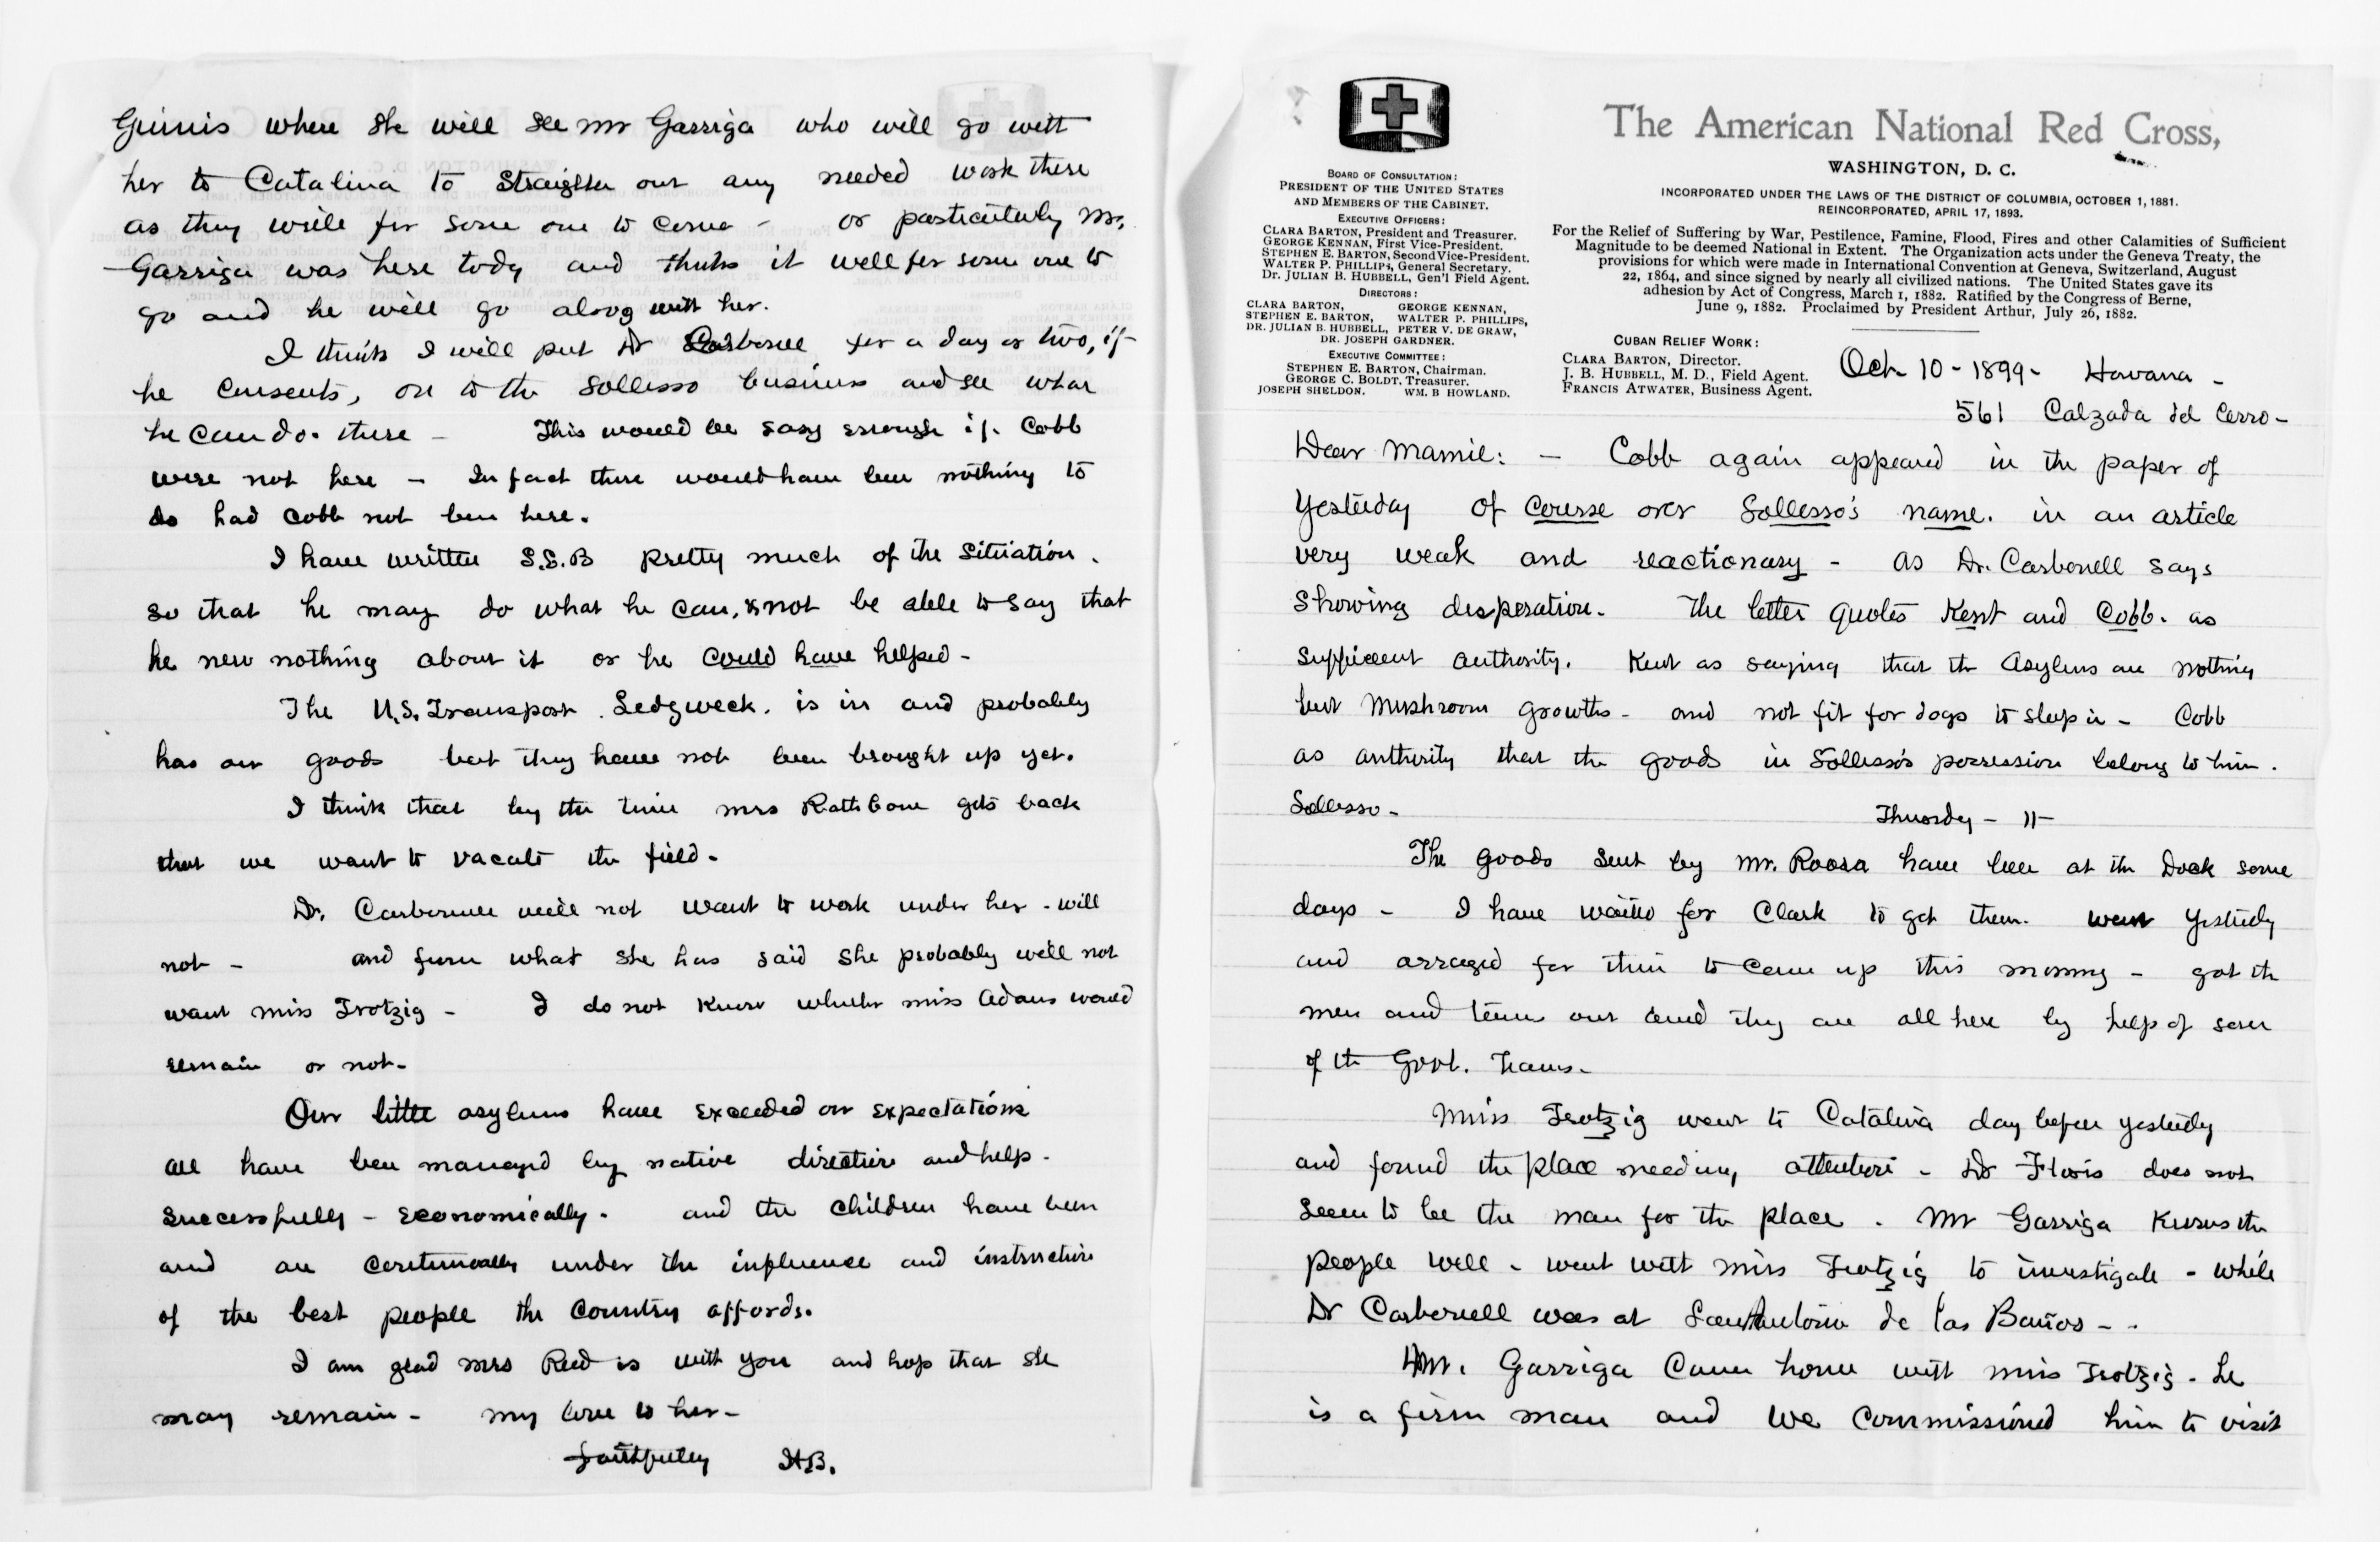 Guinis where she will see Mr Garriga who will go with
her to Catalina to straighten out any needed work there
as they write for some one to come - or particularly Mr.
Garriga was here today and thinks it well for some one to
go and he will go along with her.
I think I will put Dr Carbonell for a day or two, if
he consents, on to the Sollosso business and see what
he can do. there - This would be easy enough if. Cobb
were not here - In fact there would have been nothing to
do had Cobb not been here.
I have written S.E.B pretty much of the situation.
so that he may do what he can, & not be able to say that
he new nothing about it or he could have helped -
The U.S. Transport. Sedgweck. is in and probably
has our goods but they have not been brought up yet.
I think that by the time Mrs Rathbone gets back
that we want to vacate the field -
Dr. Carbonell will not want to work under her - will
not - and from what she has said she probably will not
want Miss Trotzig - I do not know whether Miss Adams would
remain or not -
Our little asylums have exceeded our expectations
all have been managed by native direction and help -
successfully - economically. and the children have been
and are continually under the influence and instruction
of the best people the country affords.
I am glad Mrs Reed is with you and hop that she
may remain - my love to her -
faithfully H.B.
The American National Red Cross,
WASHINGTON, D. C.
INCORPORATED UNDER THE LAWS OF THE DISTRICT OF COLUMBIA, OCTOBER 1, 1881.
REINCORPORATED, APRIL 17, 1893.
For the Relief of Suffering by War, Pestilence, Famine, Flood, Fires and other Calamities of Sufficient
Magnitude to be deemed National in Extent. The Organization acts under the Geneva Treaty, the
provisions for which were made in International Convention at Geneva, Switzerland, August
22, 1864, and since signed by nearly all civilized nations. The United States gave its
adhesion by Act of Congress, March 1, 1882. Ratified by the Congress of Berne,
June 9, 1882. Proclaimed by President Arthur, July 26, 1882.
BOARD OF CONSULTATION:
PRESIDENT OF THE UNITED STATES
AND MEMBERS OF THE CABINET.
EXECUTIVE OFFICERS:
CLARA BARTON, President and Treasurer.
GEORGE KENNAN, First Vice-President.
STEPHEN E. BARTON, Second Vice-President.
WALTER P. PHILLIPS, General Secretary.
DR. JULIAN B. HUBBELL, Gen'l Field Agent.
DIRECTORS:
CLARA BARTON, GEORGE KENNAN,
STEPHEN E. BARTON, WALTER P. PHILLIPS,
DR. JULIAN B. HUBBELL, PETER V. DE GRAW,
DR. JOSEPH GARDNER.
EXECUTIVE COMMITTEE:
STEPHEN E. BARTON, Chairman.
GEORGE C. BOLDT, Treasurer.
JOSEPH SHELDON. WM. B HOWLAND.
CUBAN RELIEF WORK:
CLARA BARTON, Director.
J. B. HUBBELL, M. D., Field Agent.
FRANCIS ATWATER, Business Agent.
Oct - 10 - 1899 - Havana -
561 Calzada del Cerro -
Dear Mamie: - Cobb again appeared in the paper of
yesterday of course over Sollosso's name. in an article
very weak and reactionary - as Dr. Carbonell says
showing desperation. The letter quotes Kent and Cobb. as
sufficient authority. Kent as saying that the Asylums are nothing
but mushroom growths - and not fit for dogs to sleep in - Cobb
as authority that the goods in Sollosso's possession belong to him.
Sollosso -
Thursday - 11 -
The goods sent by Mr. Roosa have been at the Dock some
days - I have waited for Clark to get them. went yesterday
and arraged for them to come up this morning - got the
men and teams out and they are all here by help of some
of the Govt. teams -
Miss Trotzig went to Catalina day before yesterday
and found the place needing attention - Dr Floris does not
seem to be the man for the place. Mr Garriga knows the
people well - went with Miss Trotzig to investigate - while
Dr Carbonell was at San Antonio de las Baños - -
Mr. Garriga came home with Miss Trotzig - he
is a firm man and we commissioned him to visit